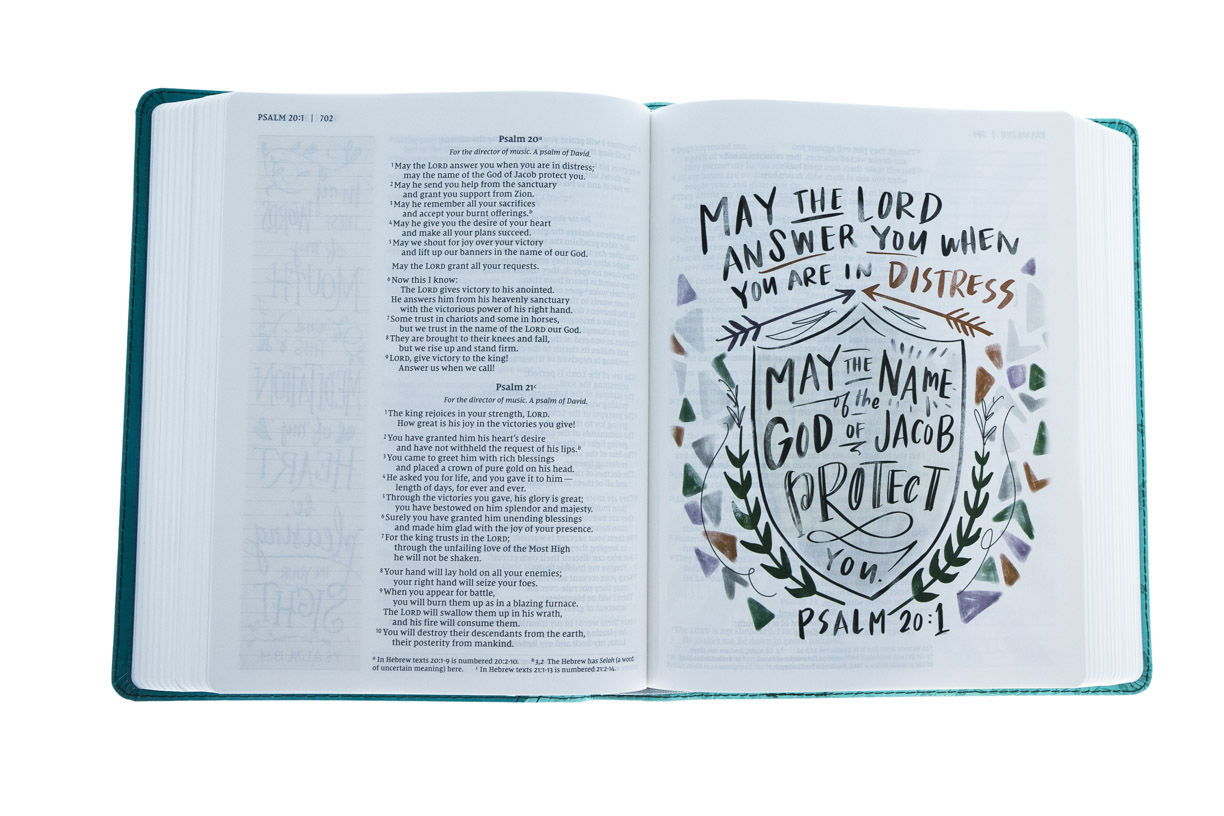 PSALM 20:1 | 702
Psalm 20ᵃ
For the director of music. A psalm of David.
¹May the LORD answer you when you are in distress;
may the name of the God of Jacob protect you.
²May he send you help from the sanctuary
and grant you support from Zion.
³May he remember all your sacrifices
and accept your burnt offerings.ᵇ
⁴May he give you the desire of your heart
and make all your plans succeed.
⁵May we shout for joy over your victory
and lift up our banners in the name of our God.
May the LORD grant all your requests.
⁶Now this I know:
The LORD gives victory to his anointed.
He answers him from his heavenly sanctuary
with the victorious power of his right hand.
⁷Some trust in chariots and some in horses,
but we trust in the name of the LORD our God.
⁸They are brought to their knees and fall,
but we rise up and stand firm.
⁹LORD, give victory to the king!
Answer us when we call!
Psalm 21ᶜ
For the director of music. A psalm of David.
¹The king rejoices in your strength, LORD.
How great is his joy in the victories you give!
²You have granted him his heart's desire
and have not withheld the request of his lips.ᵇ
³You came to greet him with rich blessings
and placed a crown of pure gold on his head.
⁴He asked you for life, and you gave it to him —
length of days, for ever and ever.
⁵Through the victories you gave, his glory is great;
you have bestowed on him splendor and majesty.
⁶Surely you have granted him unending blessings
and made him glad with the joy of your presence.
⁷For the king trusts in the LORD;
through the unfailing love of the Most High
he will not be shaken.
⁸Your hand will lay hold on all your enemies;
your right hand will seize your foes.
⁹When you appear for battle,
you will burn them up as in a blazing furnace.
The LORD will swallow them up in his wrath,
and his fire will consume them.
¹⁰You will destroy their descendants from the earth,
their posterity from mankind.
ᵃ In Hebrew texts 20:1-9 is numbered 20:2-10. ᵇ 3,2 The Hebrew has Selah (a word
of uncertain meaning) here. ᶜ In Hebrew texts 21:1-13 is numbered 21:2-14.
MAY THE LORD
ANSWER YOU WHEN
YOU ARE IN DISTRESS
MAY THE NAME
of the
GOD OF JACOB
PROTECT
YOU.
PSALM 20:1